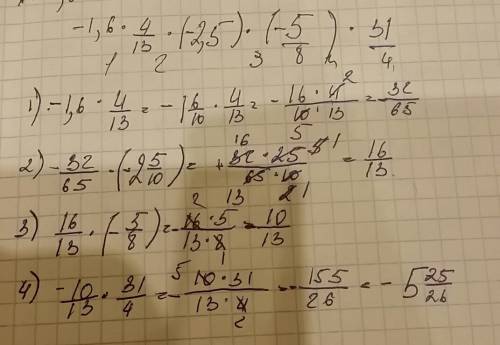 -1,6 · 4/13 · (-2,5) · (-5/8) · 31/4
1 2 3 4
1) -1,6 · 4/13 = -1 6/10 · 4/13 = - 16 · 4 2 / 10 · 13 5 = - 32/65
2) - 32/65 · (-2 5/10) = + 16 32 · 25 5 1 / 65 · 10 13 2 1 = 16/13
3) 16/13 · (-5/8) = - 2 16 · 5 / 13 · 8 1 = - 10/13
4) - 10/13 · 31/4 = - 5 10 · 31 / 13 · 4 2 = - 155/26 = - 5 25/26